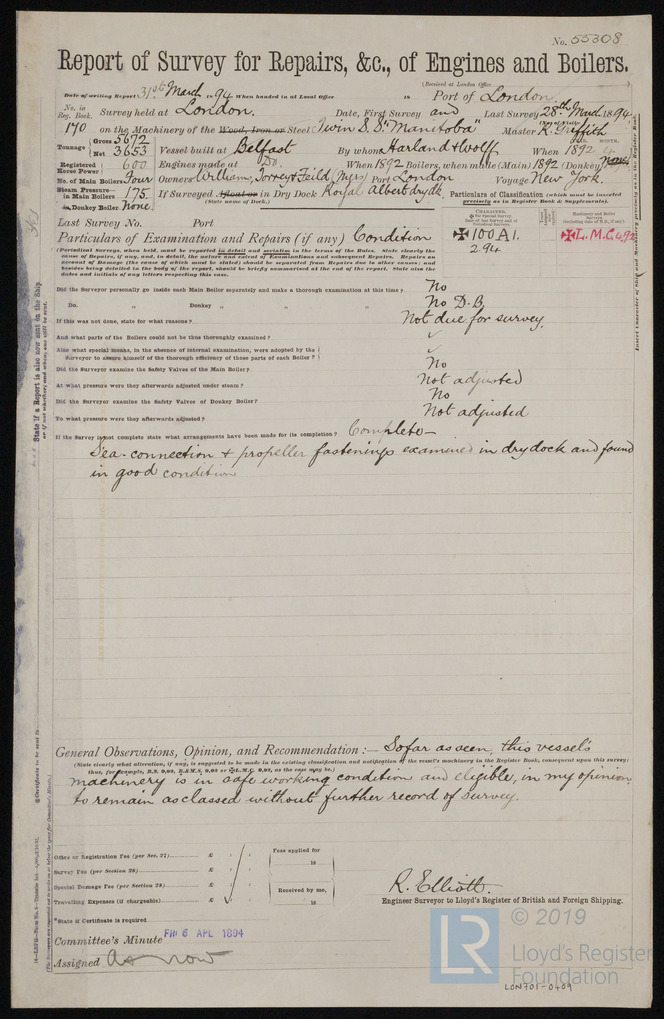 No. 55308
Report of Survey for Repairs, &c., of Engines and Boilers.
(Received at London Office
Date of writing Report 31st March 1894 When handed in at Local Office 18 Port of London
No. in Reg. Book. Survey held at London. Date, First Survey and Last Survey 28th March 1894
170 on the Machinery of the Wood, Iron or Steel Twin S.S. "Manitoba" Master R. Griffith
Tonnage Gross 5672 Net 3653 Vessel built at Belfast By whom Harland & Wolff When 1892
Registered Horse Power 600 Engines made at Do. When 1892 Boilers, when made (Main) 1892 (Donkey) None
No. of Main Boilers Four Owners William, Torrey & Feild, Mgrs Port London Voyage New York
Steam Pressure in Main Boilers 175 If Surveyed Afloat or in Dry Dock Royal Albert dry dk
in Donkey Boiler None. (State name of Dock.)
Particulars of Classification (which must be inserted precisely as in Register Book & Supplements).
Last Survey No. Port
✠ 100 A1. ✠ L.M.C. 4,92
2.94
Particulars of Examination and Repairs (if any) Condition
(Periodical Surveys, when held, must be reported in detail and seriatim in the terms of the Rules. State clearly the
cause of Repairs, if any, and, in detail, the nature and extent of Examinations and subsequent Repairs. Repairs on
account of Damage (the cause of which must be stated) should be separated from Repairs due to other causes; and
besides being detailed in the body of the report, should be briefly summarised at the end of the report. State also the
dates and initials of any letters respecting this case.
Did the Surveyor personally go inside each Main Boiler separately and make a thorough examination at this time? No
Do. " Donkey " " " No D.B.
If this was not done, state for what reasons? Not due for survey.
And what parts of the Boilers could not be thus thoroughly examined?
Also what special means, in the absence of internal examination, were adopted by the
Surveyor to assure himself of the thorough efficiency of those parts of each Boiler?
Did the Surveyor examine the Safety Valves of the Main Boiler? No
At what pressure were they afterwards adjusted under steam? Not adjusted
Did the Surveyor examine the Safety Valves of Donkey Boiler? No
To what pressure were they afterwards adjusted? Not adjusted
If the Survey is not complete state what arrangements have been made for its completion? Complete
Sea-connection & propeller fastenings examined in dry dock and found
in good condition
General Observations, Opinion, and Recommendation:— So far as seen, this vessel's
(State clearly what alteration, if any, is suggested to be made in the existing classification and notification of the vessel's machinery in the Register Book, consequent upon this survey;
machinery is in safe working condition and eligible, in my opinion
to remain as classed without further record of survey.
Office or Registration Fee (per Sec. 27) £ Fees applied for
Survey Fee (per Section 28) £ 18
Special Damage Fee (per Section 28) £ Received by me,
Travelling Expenses (if chargeable) £ 18
R. Elliott.
Engineer Surveyor to Lloyd's Register of British and Foreign Shipping.
*State if Certificate is required
Committee's Minute FRI 6 APL 1894
Assigned As now
State if a Report is also now sent on the Ship.
LR © 2019
Lloyd's Register
Foundation
LON701-0409